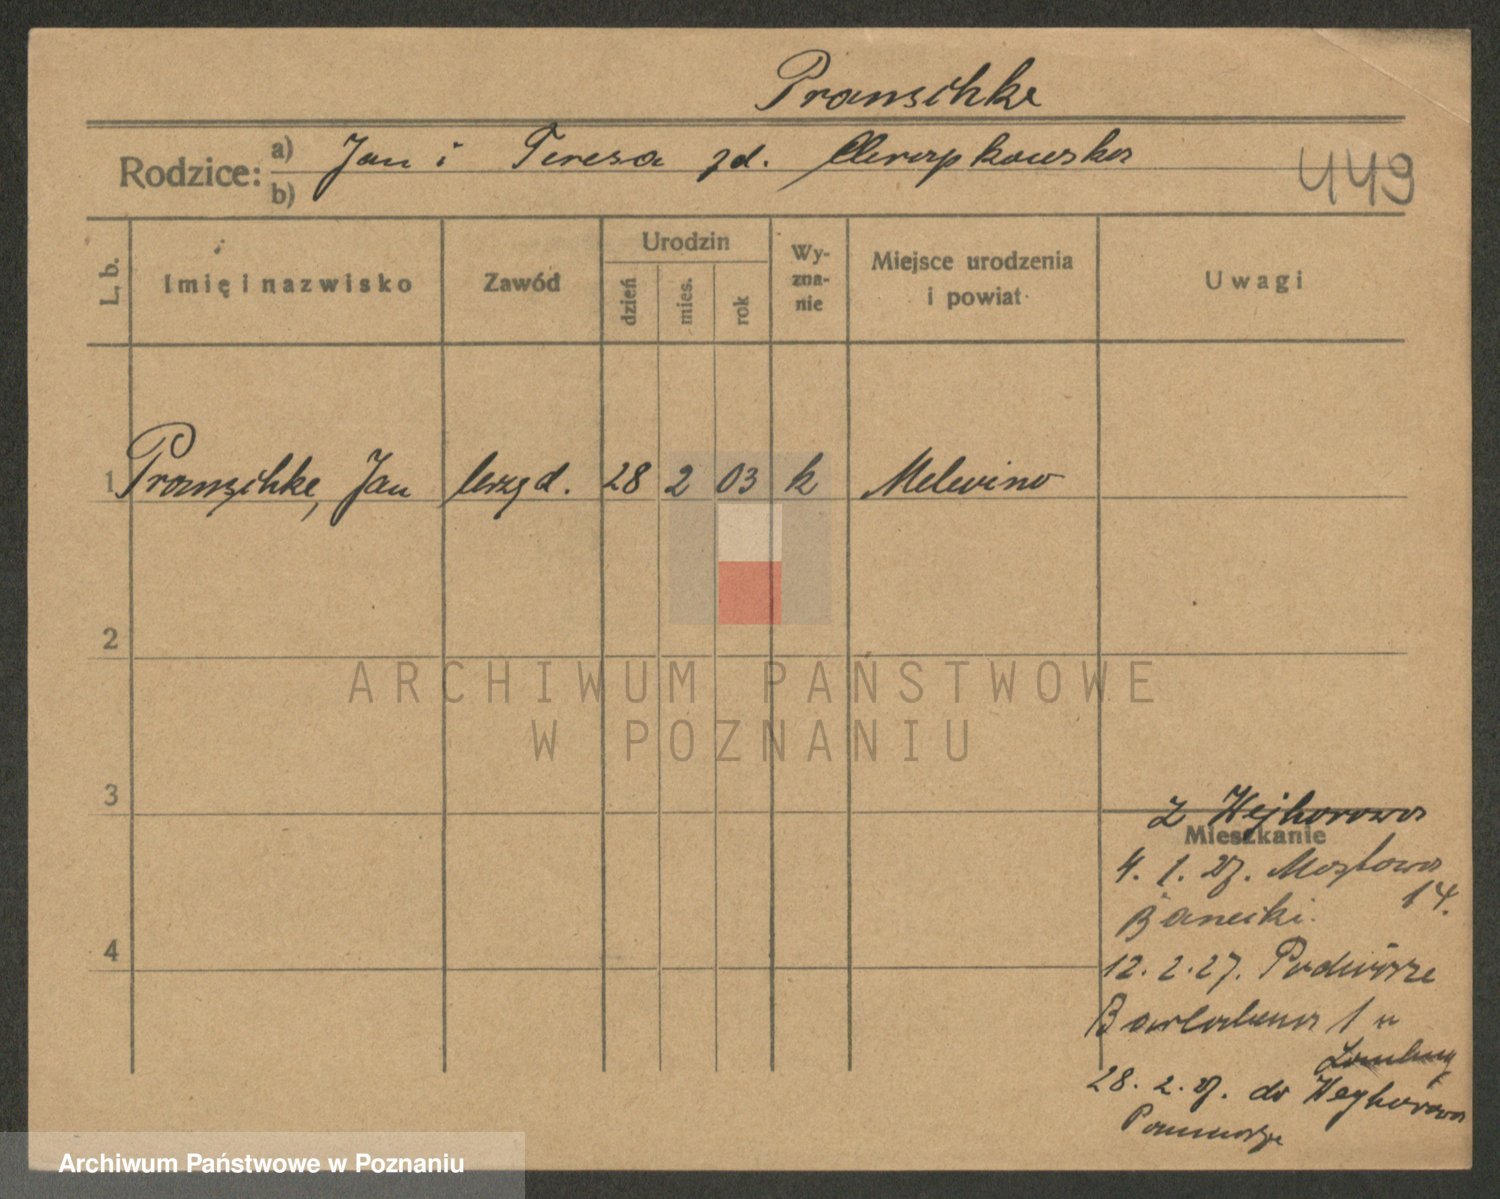 Pranschke
Rodzice: a) Jan i Teresa zd.
b)
449
L. b.
Imię i nazwisko
Zawód
Urodzin
dzień
mies.
rok
Wy-
zna-
nie
Miejsce urodzenia
i powiat
Uwagi
1 Pranschke, Jan urzęd. 28 2 03 k Melwino
2
ARCHIWUM PAŃSTWOWE
W POZNANIU
3
z Wejherowa
Mieszkanie
4. 1. 27. Mostowa
14.
Banecki.
12. 2. 27. Podwórze
1 u
28. 2. 27. do Wejherowa
Pomorze
4
Archiwum Państwowe w Poznaniu